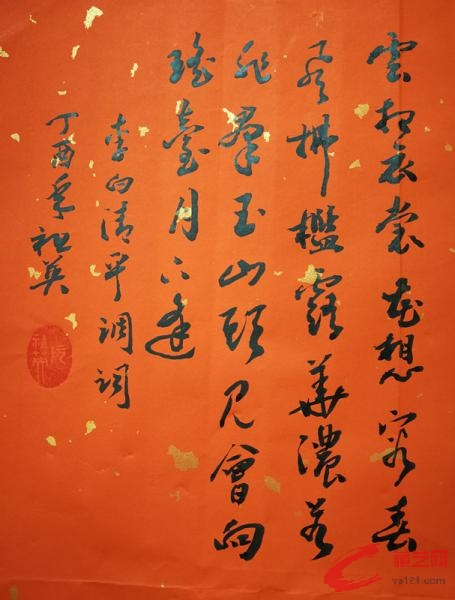 雲想衣裳花想容春
風拂檻露華濃若
非羣玉山頭見會向
瑤臺月下逢
李白清平調詞
丁酉年祖英